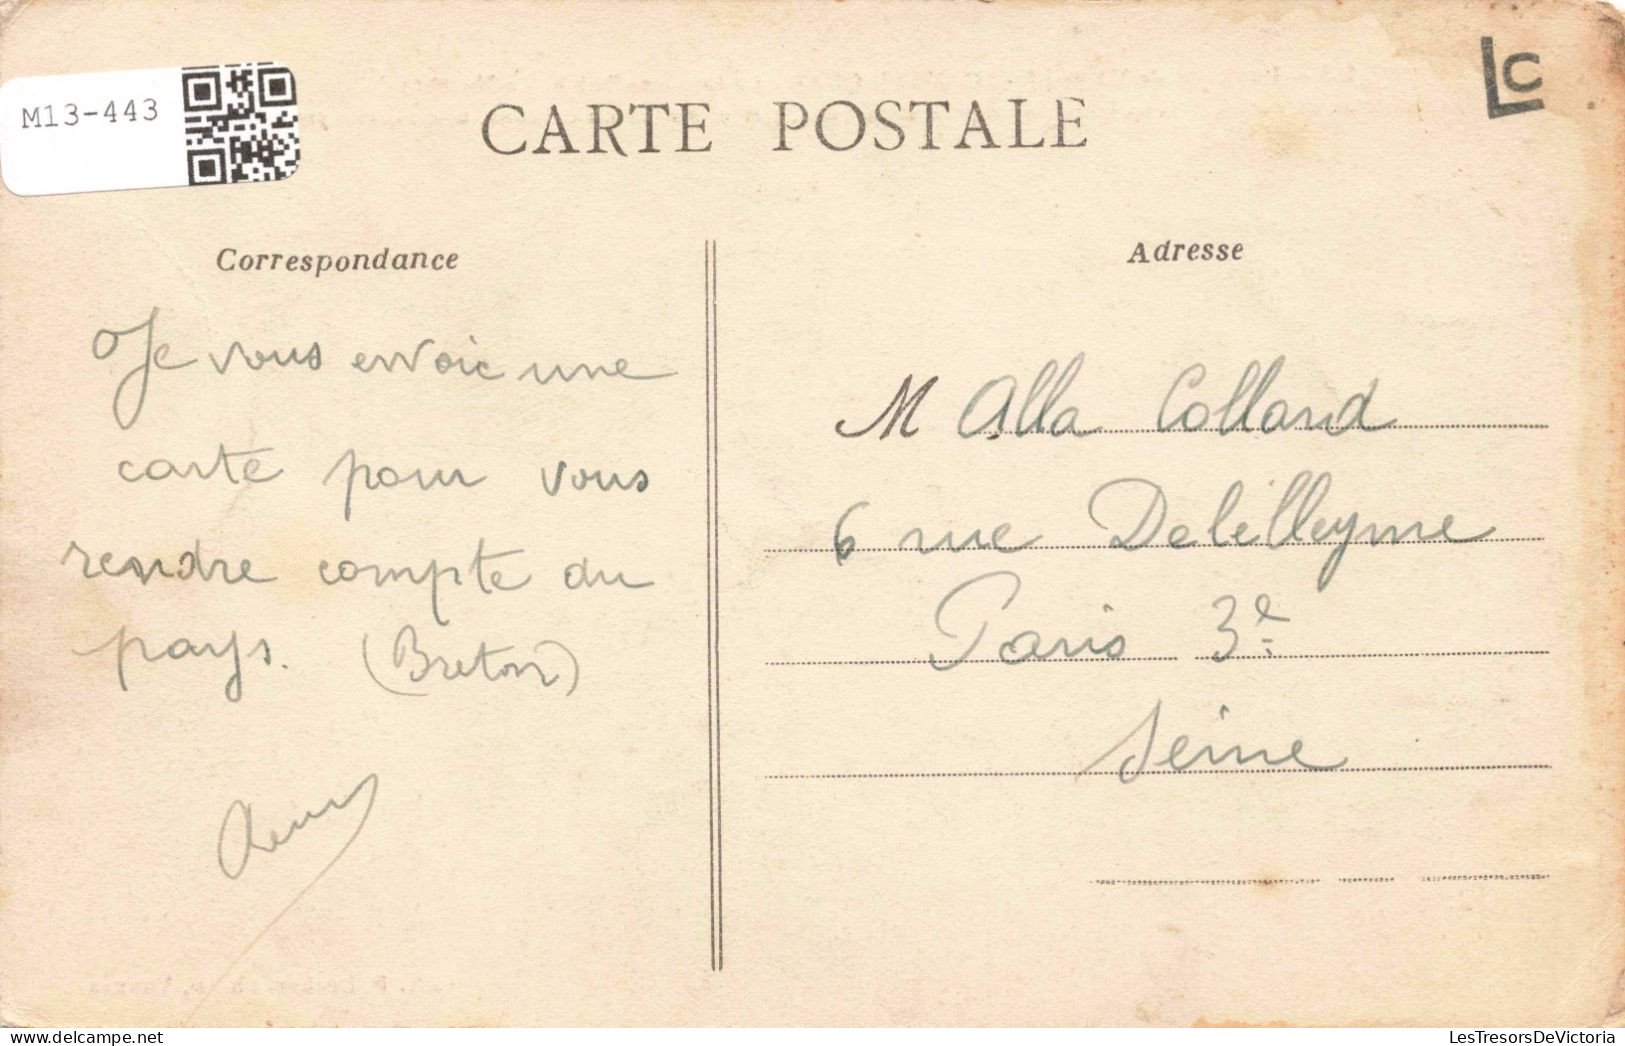 M13-443
CARTE POSTALE
LC
Correspondance
Je vous envoie une
carte pour vous
rendre compte du
pays. (Breton)
Adresse
M Alla Colland
6 rue Debelleyme
Paris 3e
Seine
LesTresorsDeVictoria